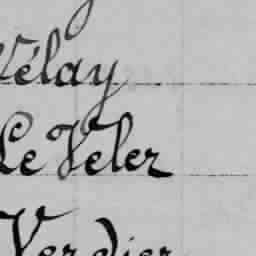 Vélay
Le Veler
Verdier